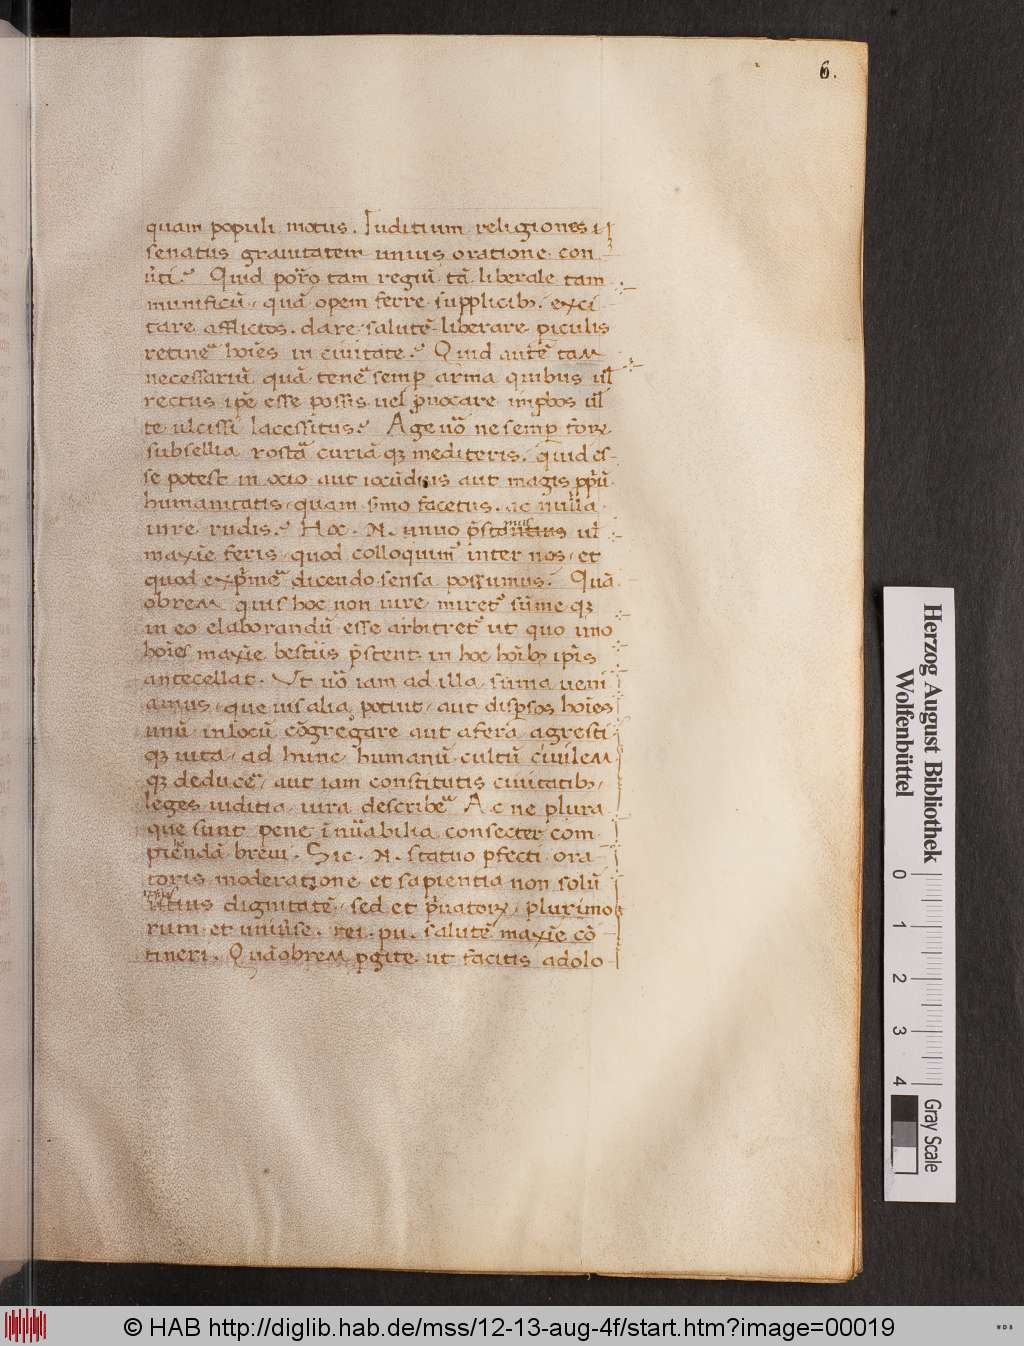 6.
quam populi motus. Iuditium religiones
senatus grauitatem unius oratione con
ũti? Quid porro tam regiũ tã liberale tam
munificũ, quã opem ferre supplicib; exci
tare afflictos. dare salutẽ liberare piculis
retinẽ hoĩes in ciuitate? Quid autẽ tam
necessariũ quã tenẽ semp arma quibus ul̃
tectus ipẽ esse possis uel ꝓuocare inpbos ul̃
te ulcissi lacessitus? Age uõ ne semp forũ
subsellia rostã curiã qȝ mediteris. quid es-
se potest in ocio aut iocũdius aut magis ppriũ
humanitatis, quam smo facetus. ac nulla
in re rudis? Hoc. N. unuo p̃stamus ul̃
maxĩe feris, quod colloquimur inter nos, et
quod exprimẽ dicendo sensa possumus. Quã
obrem quis hoc non iure miret᷑ sũme qȝ
in eo elaborandũ esse arbitret᷑ ut quo uno
hoĩes maxĩe bestiis p̃stent in hoc hoĩb; ipĩs
antecellat. Ut uõ iam ad illa sũma ueni
amus, que uis alia potuit, aut dispsos hoĩes
unũ in locũ cõgregare aut a fera agresti
qȝ uita, ad hunc humanũ cultũ ciuilem
qȝ deducẽ, aut iam constitutis ciuitatib;,
leges iuditia iura describẽ Ac ne plura
que sunt pene ĩnũabilia consecter com
p̃hendã breui. Sic. N. statuo pfecti ora
toris moderatione et sapientia non solũ
ipsius dignitatẽ, sed et p̃uatorũ, plurimo
rum et uniũse. rei. pu. salutẽ maxĩe cõ
tineri. Quãobrem pgite ut facitis adolo
Herzog August Bibliothek
Wolfenbüttel
0 1 2 3 4
Gray Scale
© HAB http://diglib.hab.de/mss/12-13-aug-4f/start.htm?image=00019